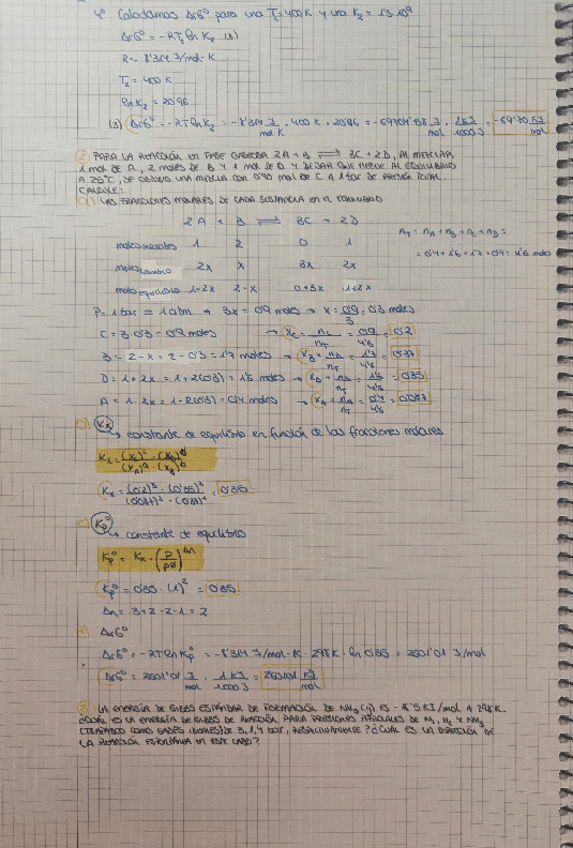 4º Calculamos ΔrG° para una T₂=400K y una K₂ = 1'3·10⁹
ΔrG° = -RT₂ ln K₂ (3)
R = 8'314 J/mol·K
T₂ = 400 K
ln K₂ = 20'96
(3) ΔrG° = -RT ln K₂ = -8'314 J/mol·K · 400 K · 20'96 = J/mol · 1KJ/1000J = -69'70 KJ/mol
2 PARA LA REACCIÓN EN FASE GASEOSA 2A + B ⇌ 3C + 2D, AL MEZCLAR
1 mol DE A, 2 moles DE B Y 1 mol DE D Y DEJAR QUE LLEGUE AL EQUILIBRIO
A 25°C, SE OBTUVO UNA MEZCLA CON 0'90 mol DE C A 1 bar DE PRESIÓN TOTAL.
CALCULE:
a) LAS FRACCIONES MOLARES DE CADA SUSTANCIA EN EL EQUILIBRIO
2A + B ⇌ 3C + 2D
nT = nA + nB + nC + nD =
moles iniciales 1 2 0 1
= 0'4 + 1'6 + 1'7 + 0'9 = 4'6 moles
moles cambio 2x x 3x 2x
moles equilibrio 1-2x 2-x 0+3x 1+2x
P = 1 bar = 1 atm → 3x = 0'9 moles → x = 0'9/3 = 0'3 moles
C = 3·0'3 = 0'9 moles → xC = nC/nT = 0'9/4'6 = 0'2
B = 2-x = 2-0'3 = 1'7 moles → xB = nB/nT = 1'7/4'6 = 0'37
D = 1+2x = 1+2(0'3) = 1'6 moles → xD = nD/nT = 1'6/4'6 = 0'35
A = 1-2x = 1-2(0'3) = 0'4 moles → xA = nA/nT = 0'4/4'6 = 0'087
b) Kx
→ constante de equilibrio en función de las fracciones molares
Kx = (xC)ᶜ · (xD)ᵈ / (xA)ᵃ · (xB)ᵇ
Kx = (0'2)³ · (0'35)² / (0'087)² · (0'37)¹ = 0'35
c) Kp°
→ constante de equilibrio
Kp° = Kx · (P/P°)^Δn
Kp° = 0'35 · (1)² = 0'35
Δn = 3+2-2-1 = 2
d) ΔrG°
ΔrG° = -RT ln Kp° = -8'314 J/mol·K · 298K · ln 0'35 = 2601'01 J/mol
ΔrG° = 2601'01 J/mol · 1KJ/1000J = KJ/mol
3 LA ENERGÍA DE GIBBS ESTÁNDAR DE FORMACIÓN DE NH₃ (g) ES KJ/mol A 298 K.
¿CUÁL ES LA ENERGÍA DE GIBBS DE REACCIÓN PARA PRESIONES PARCIALES DE N₂, H₂ Y NH₃
(TRATADOS COMO GASES IDEALES) DE 3, 1, 4 bar, RESPECTIVAMENTE? ¿CUÁL ES LA DIRECCIÓN DE
LA REACCIÓN ESPONTÁNEA EN ESTE CASO?